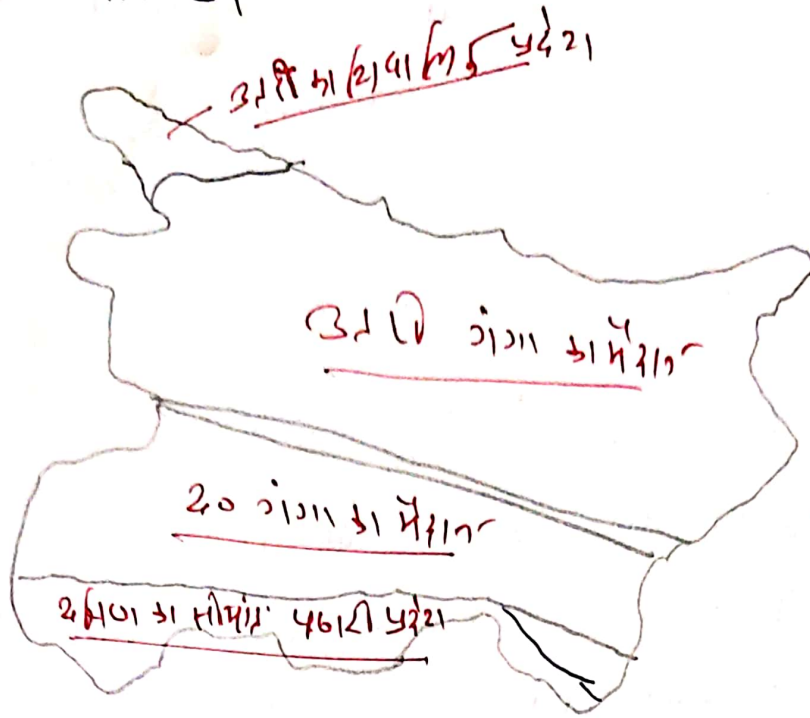 उत्तरी का शिवालिक प्रदेश
उत्तरी गंगा का मैदान
द० गंगा का मैदान
दक्षिण का सीमांत पठारी प्रदेश